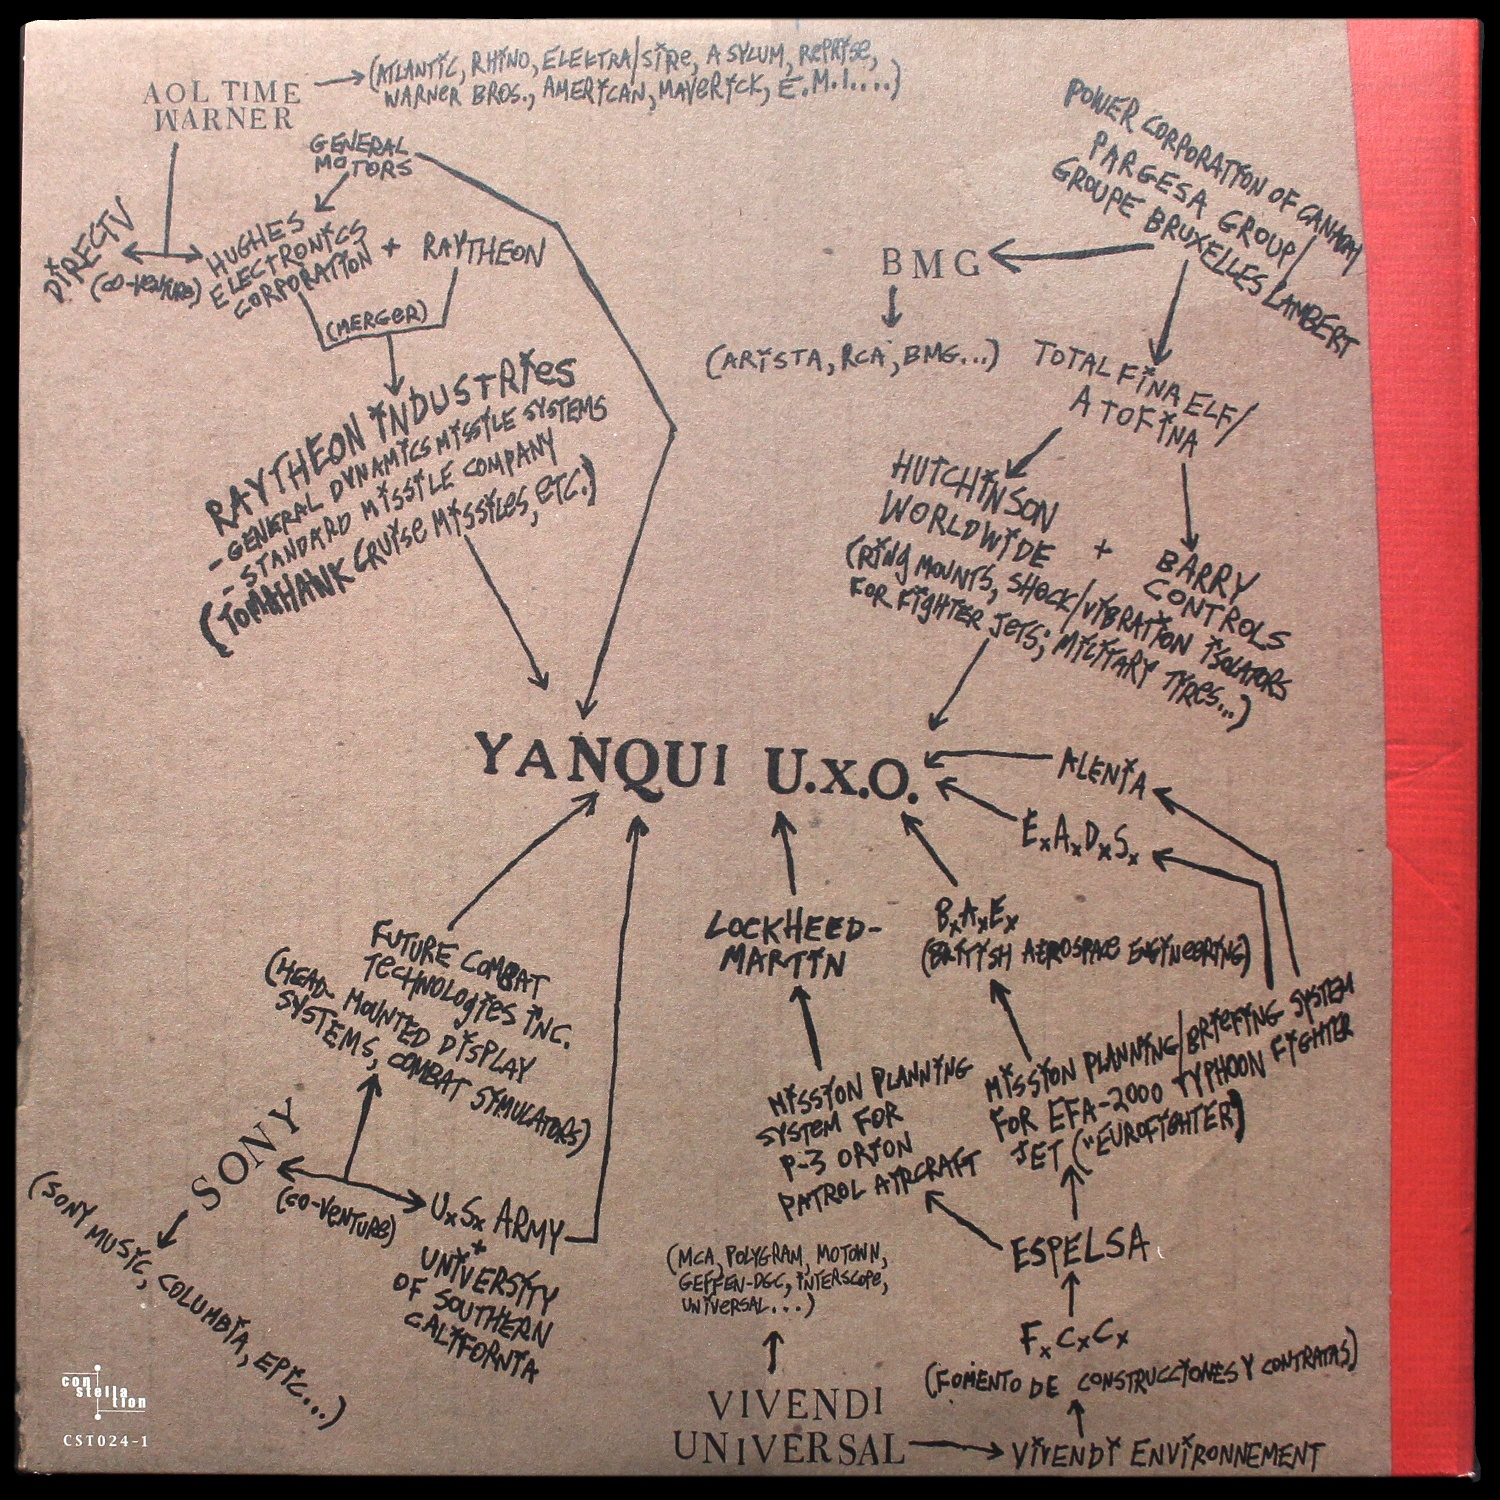 AOL TIME
WARNER
(ATLANTIC, RHINO, ELEKTRA/SIRE, ASYLUM, REPRISE,
WARNER BROS., AMERICAN, MAVERICK, E.M.I....)
GENERAL
MOTORS
DIRECTV
(CO-VENTURE)
HUGHES
ELECTRONICS
CORPORATION
+ RAYTHEON
(MERGER)
RAYTHEON INDUSTRIES
- GENERAL DYNAMICS MISSILE SYSTEMS
- STANDARD MISSILE COMPANY
(TOMAHAWK CRUISE MISSILES, ETC.)
POWER CORPORATION OF CANADA/
PARGESA GROUP/
GROUPE BRUXELLES LAMBERT
BMG
(ARISTA, RCA, BMG...)
TOTAL FINA ELF/
ATOFINA
HUTCHINSON
WORLDWIDE
+
BARRY
CONTROLS
(RING MOUNTS, SHOCK/VIBRATION ISOLATORS
FOR FIGHTER JETS; MILITARY TYRES...)
YANQUI U.X.O.
ALENIA
ExAxDxSx
FUTURE COMBAT
TECHNOLOGIES INC.
(HEAD-MOUNTED DISPLAY
SYSTEMS, COMBAT SIMULATORS)
LOCKHEED-
MARTIN
BxAxEx
(BRITISH AEROSPACE ENGINEERING)
MISSION PLANNING
SYSTEM FOR
P-3 ORION
PATROL AIRCRAFT
MISSION PLANNING/BRIEFING SYSTEM
FOR EFA-2000 TYPHOON FIGHTER
JET ("EUROFIGHTER)
SONY
(CO-VENTURE)
UxSx ARMY
+
UNIVERSITY
OF SOUTHERN
CALIFORNIA
(SONY MUSIC, COLUMBIA, EPIC...)
ESPELSA
(MCA, POLYGRAM, MOTOWN,
GEFFEN-DGC, INTERSCOPE,
UNIVERSAL...)
FxCxCx
(FOMENTO DE CONSTRUCCIONES Y CONTRATAS)
VIVENDI
UNIVERSAL
VIVENDI ENVIRONNEMENT
con
stella
tion
CST024-1